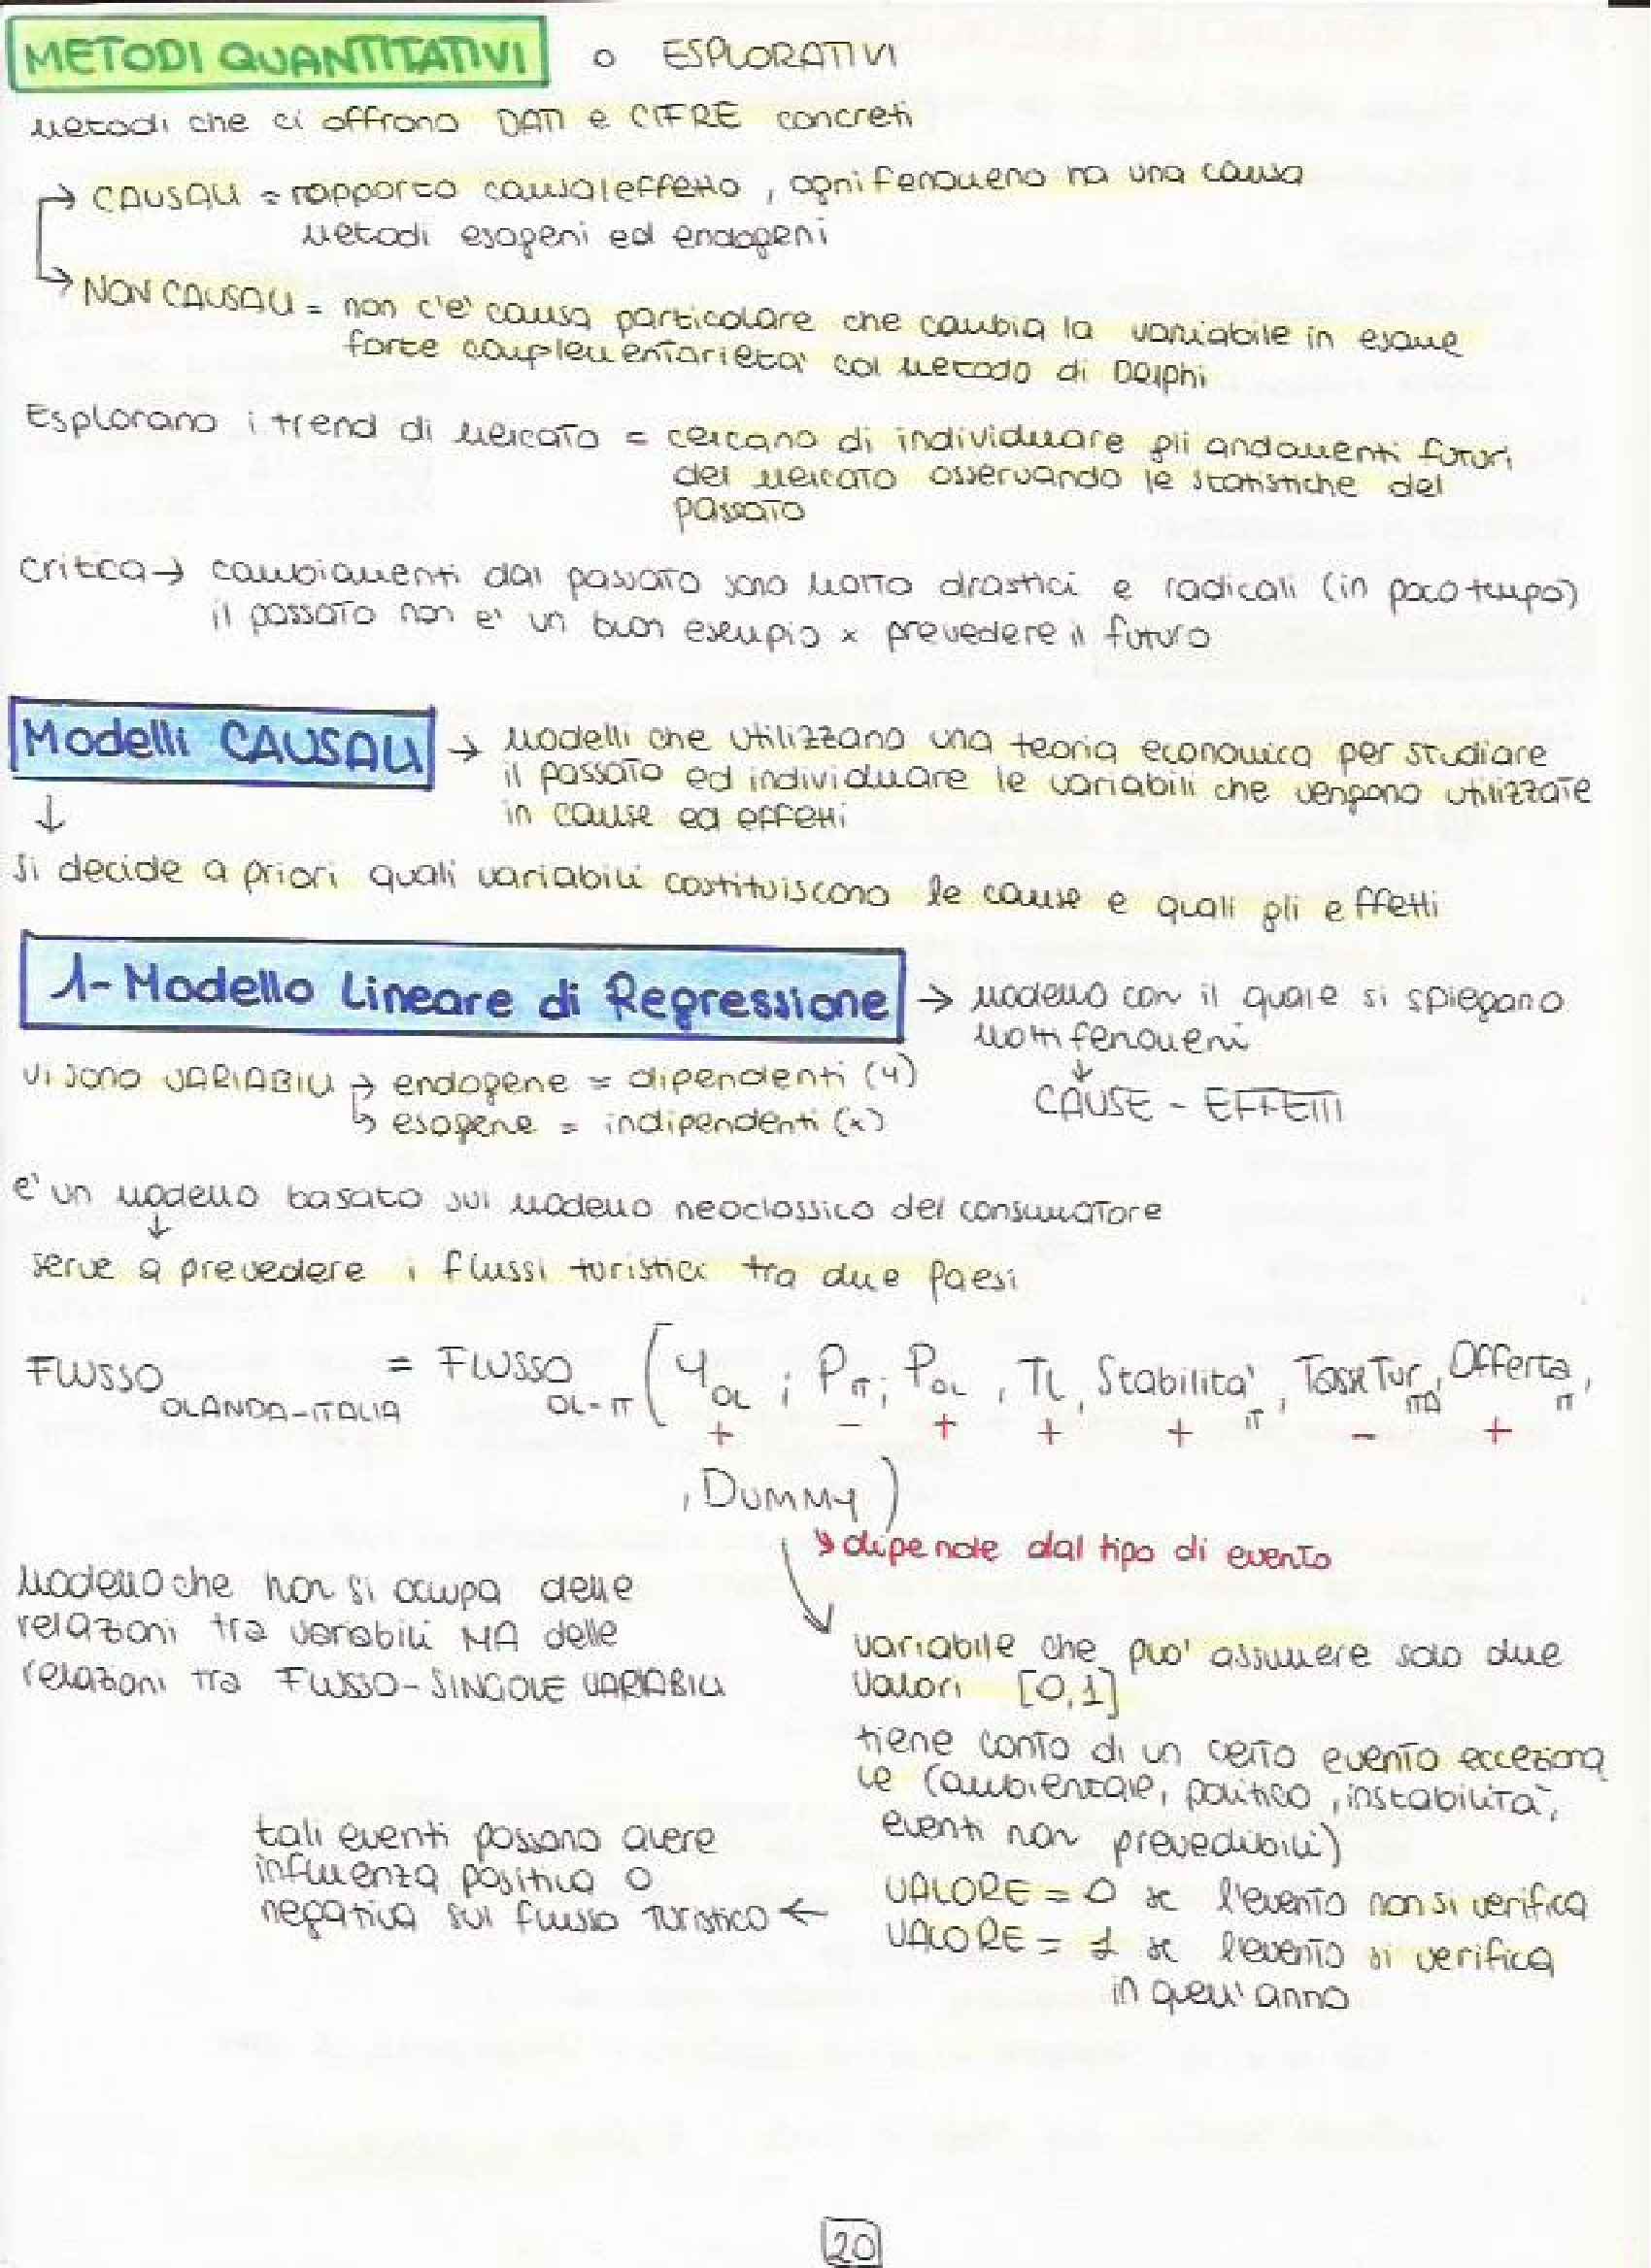 METODI QUANTITATIVI o ESPLORATIVI
Metodi che ci offrono DATI e CIFRE concreti
→ CAUSALI = rapporto causa/effetto, ogni fenomeno ha una causa
Metodi esogeni ed endogeni
→ NON CAUSALI = non c'e' causa particolare che cambia la variabile in esame
forte complementarieta' col metodo di Delphi
Esplorano i trend di mercato = cercano di individuare gli andamenti futuri
del mercato osservando le statistiche del
passato
critica → cambiamenti dal passato sono molto drastici e radicali (in poco tempo)
il passato non e' un buon esempio x prevedere il futuro
Modelli CAUSALI → Modelli che utilizzano una teoria economica per studiare
il passato ed individuare le variabili che vengono utilizzate
in cause ed effetti
↓
si decide a priori quali variabili costituiscono le cause e quali gli effetti
1- Modello Lineare di Regressione → modello con il quale si spiegano
molti fenomeni
↓
CAUSE - EFFETTI
vi sono VARIABILI → endogene = dipendenti (y)
↳ esogene = indipendenti (x)
e' un modello basato sul modello neoclassico del consumatore
↓
serve a prevedere i flussi turistici tra due paesi
FLUSSO OLANDA-ITALIA = FLUSSO OL-IT ( Y OL ; P IT ; P OL , TC , Stabilita' IT , TasseTur ITA , Offerta IT ,
+ - + + + - +
, DUMMY )
↳ dipende dal tipo di evento
Modello che non si occupa delle
relazioni tra variabili MA delle
relazioni tra FLUSSO-SINGOLE VARIABILI
variabile che puo' assumere solo due
valori [0,1]
tiene conto di un certo evento ecceziona
le (ambientale, politico, instabilita',
eventi non prevedibili)
VALORE = 0 se l'evento non si verifica
VALORE = 1 se l'evento si verifica
in quell'anno
tali eventi possono avere
influenza positiva o
negativa sul flusso turistico ←
20